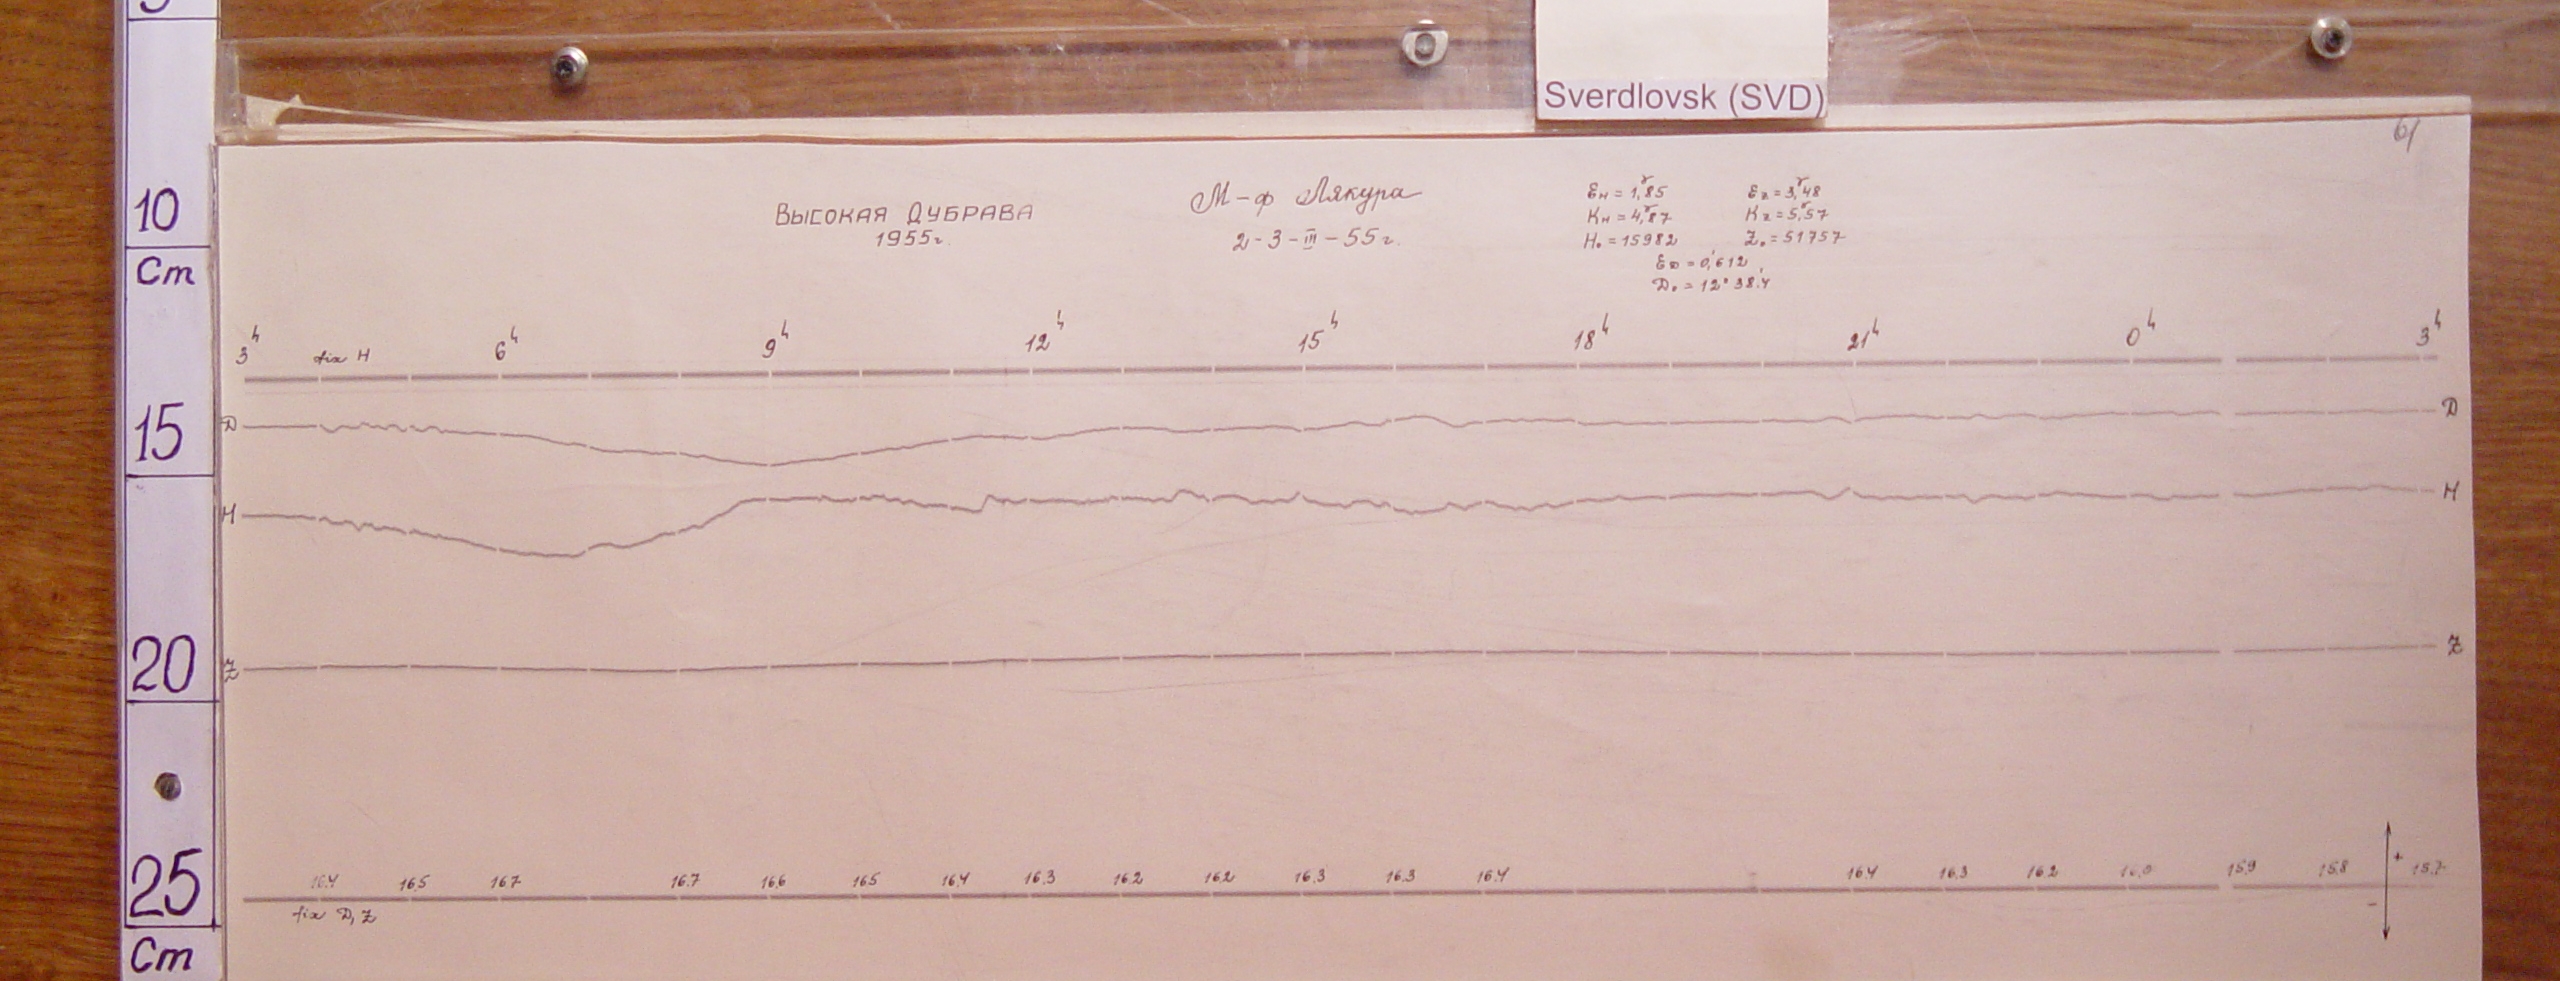 Sverdlovsk (SVD)
61
10
Cm
15
20
25
Cm
Высокая Дубрава
1955г.
М-ф Лякура
2-3-III-55г.
Ɛн = 1,ᵞ85
Kн = 4,ᵞ87
H₀ = 15982
Ɛz = 3,ᵞ48
Kz = 5,ᵞ57
Z₀ = 51757
ƐD = 0,′612
D₀ = 12° 38.′4
3ʰ fix H 6ʰ 9ʰ 12ʰ 15ʰ 18ʰ 21ʰ 0ʰ 3ʰ
D D
H H
Z Z
16.4 16.5 16.7 16.7 16.6 16.5 16.4 16.3 16.2 16.2 16.3 16.3 16.4 16.4 16.3 16.2 16.0 15.9 15.8 + 15.7
fix D, Z -